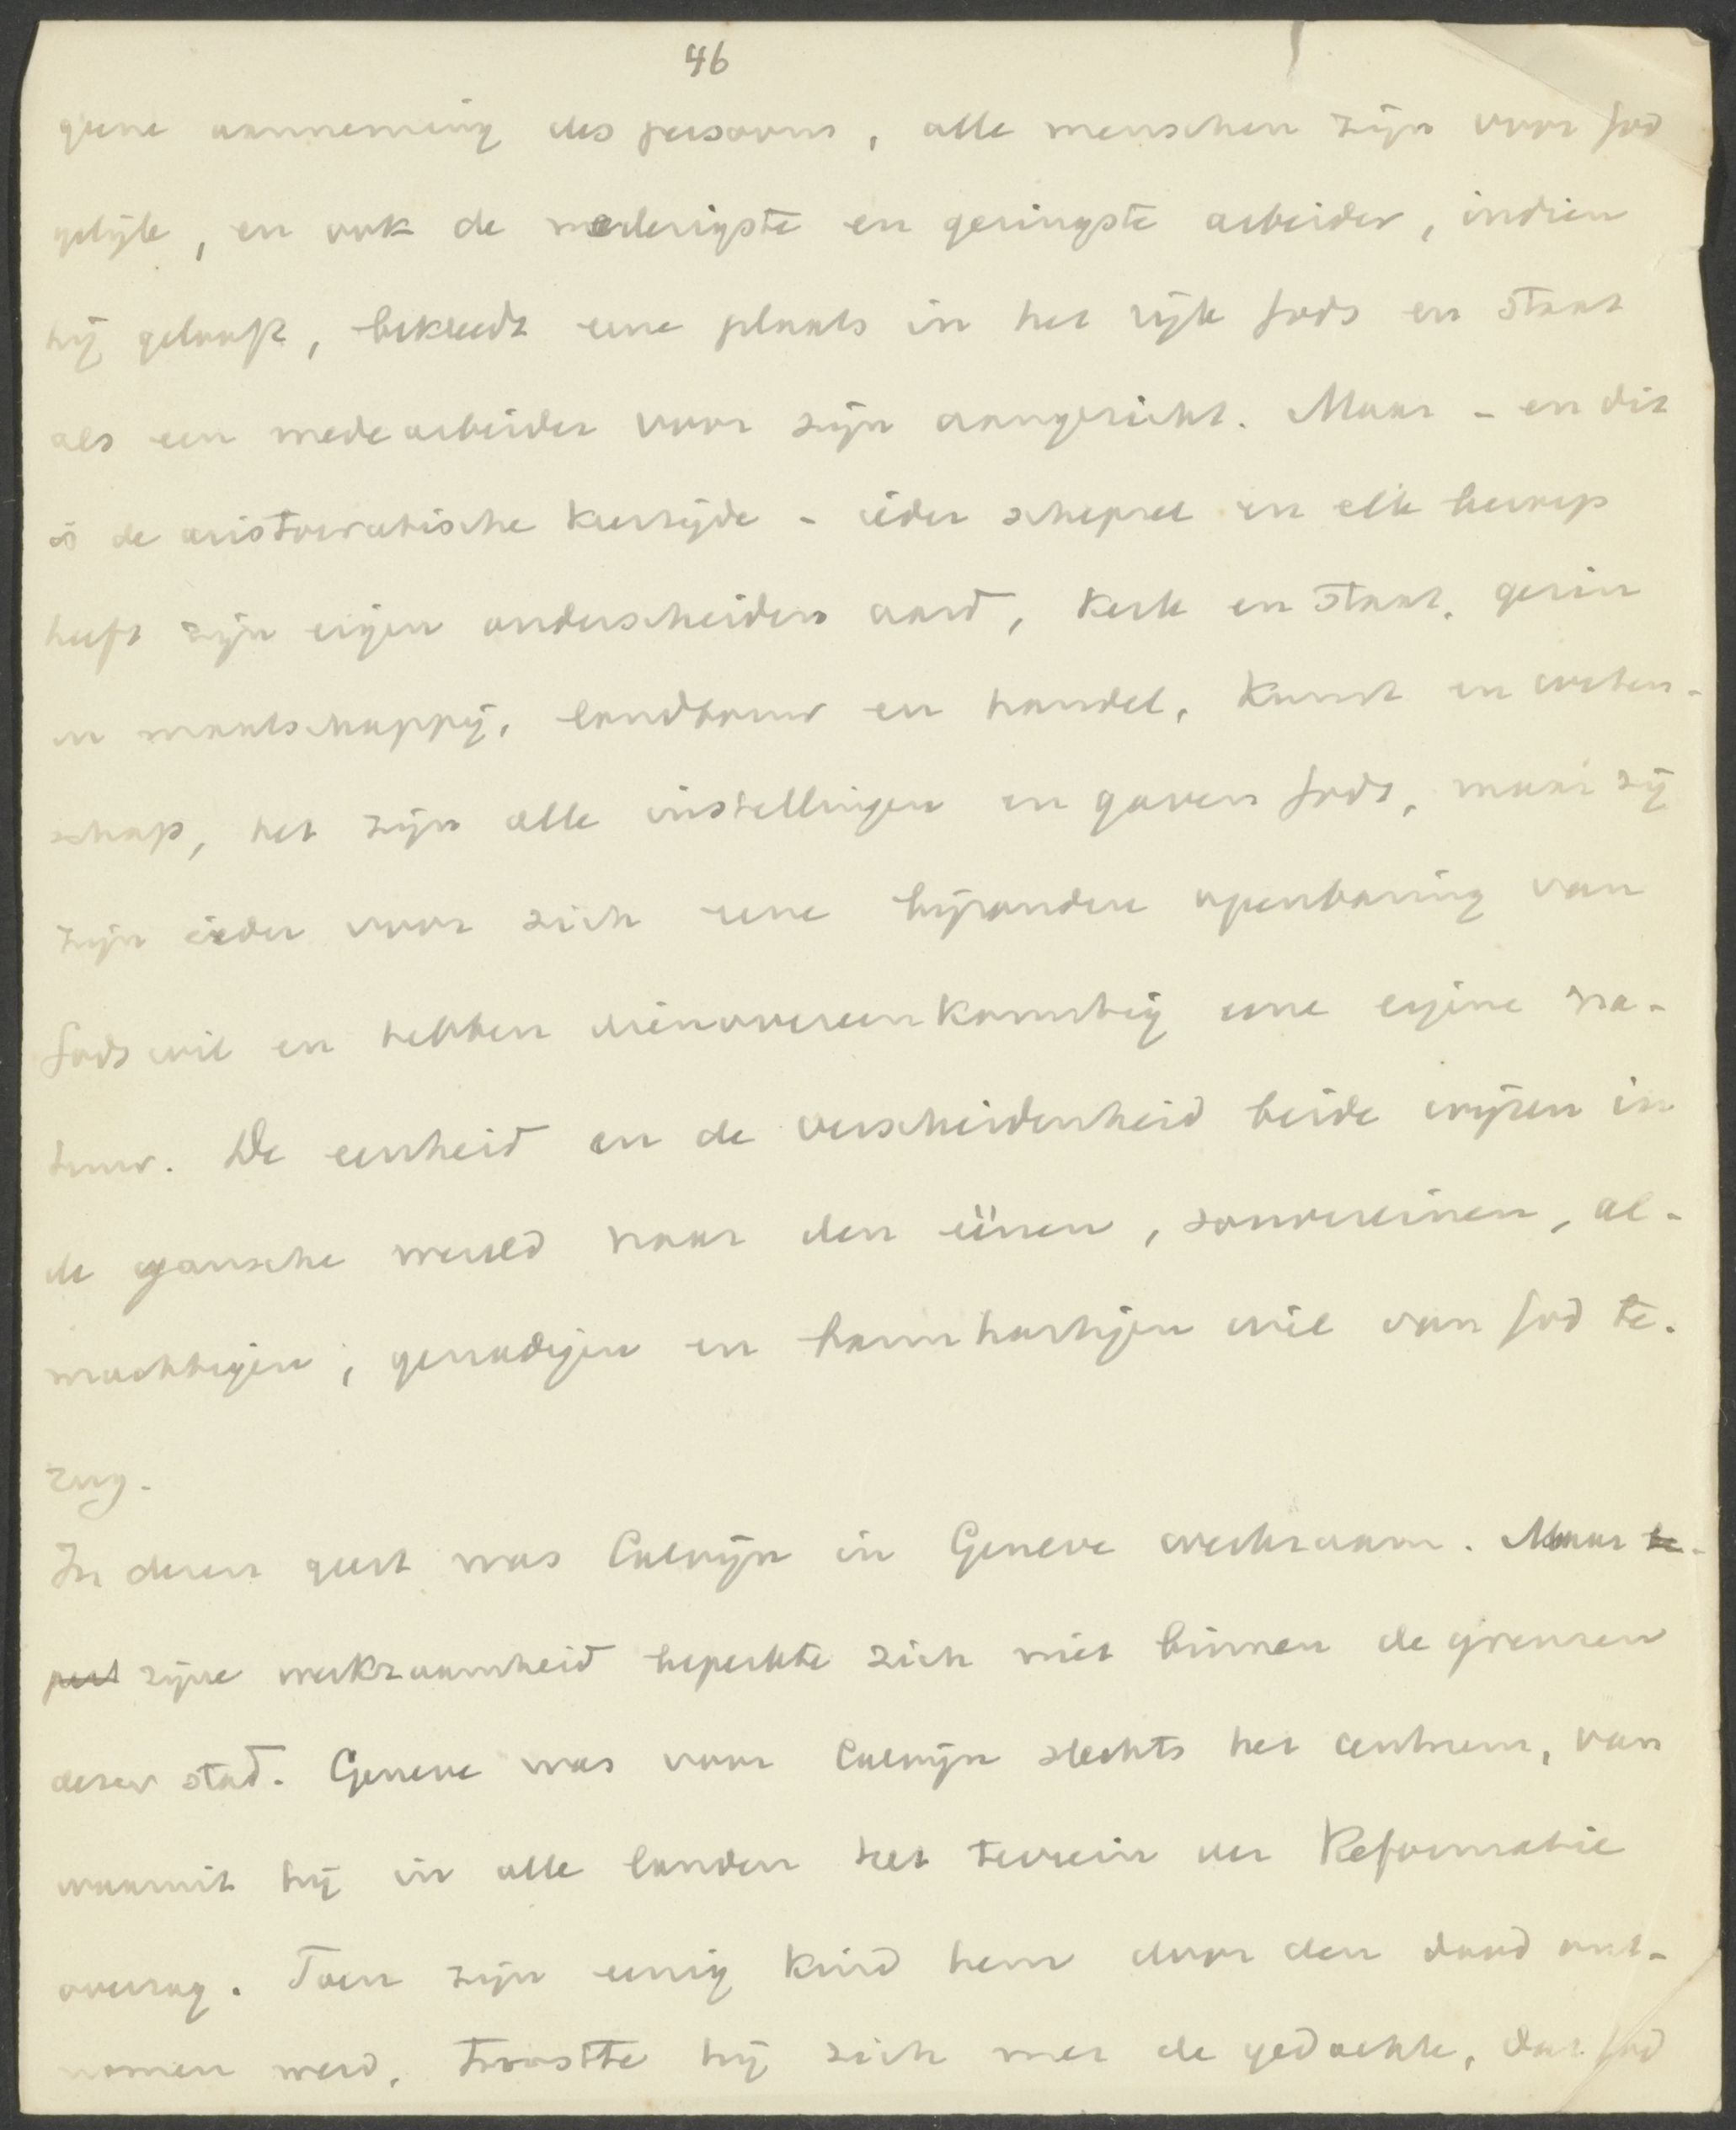 46
geene aanneming des persoons, alle menschen zijn voor God
gelijk, en ook de nederigste en geringste arbeider, indien
hij gelooft, bekleedt eene plaats in het rijk Gods en staat
als een medearbeider voor zijn aangezicht. Maar - en dit
is de aristocratische keerzijde - ieder schepsel en elk beroep
heeft zijn eigen onderscheiden aard, kerk en staat, gezin
en maatschappij, landbouw en handel, kunst en weten-
schap, het zijn alle instellingen en gaven Gods, maar zij
zijn ieder voor zich eene bijzondere openbaring van
Gods wil en hebben dienovereenkomstig eene eigene na-
tuur. De eenheid en de verscheidenheid beide wijzen in
de gansche wereld naar den éénen, souvereinen, al-
machtigen, genadigen en barmhartigen wil van God te-
rug.
In dezen geest was Calvijn in Geneve werkzaam. Maar be-
perk zijne werkzaamheid beperkte zich niet binnen de grenzen
dezer stad. Geneve was voor Calvijn slechts het centrum, van
waaruit hij in alle landen het terrein der Reformatie
overzag. Toen zijn eenig kind hem door den dood ont-
nomen werd, troostte hij zich met de gedachte, dat God